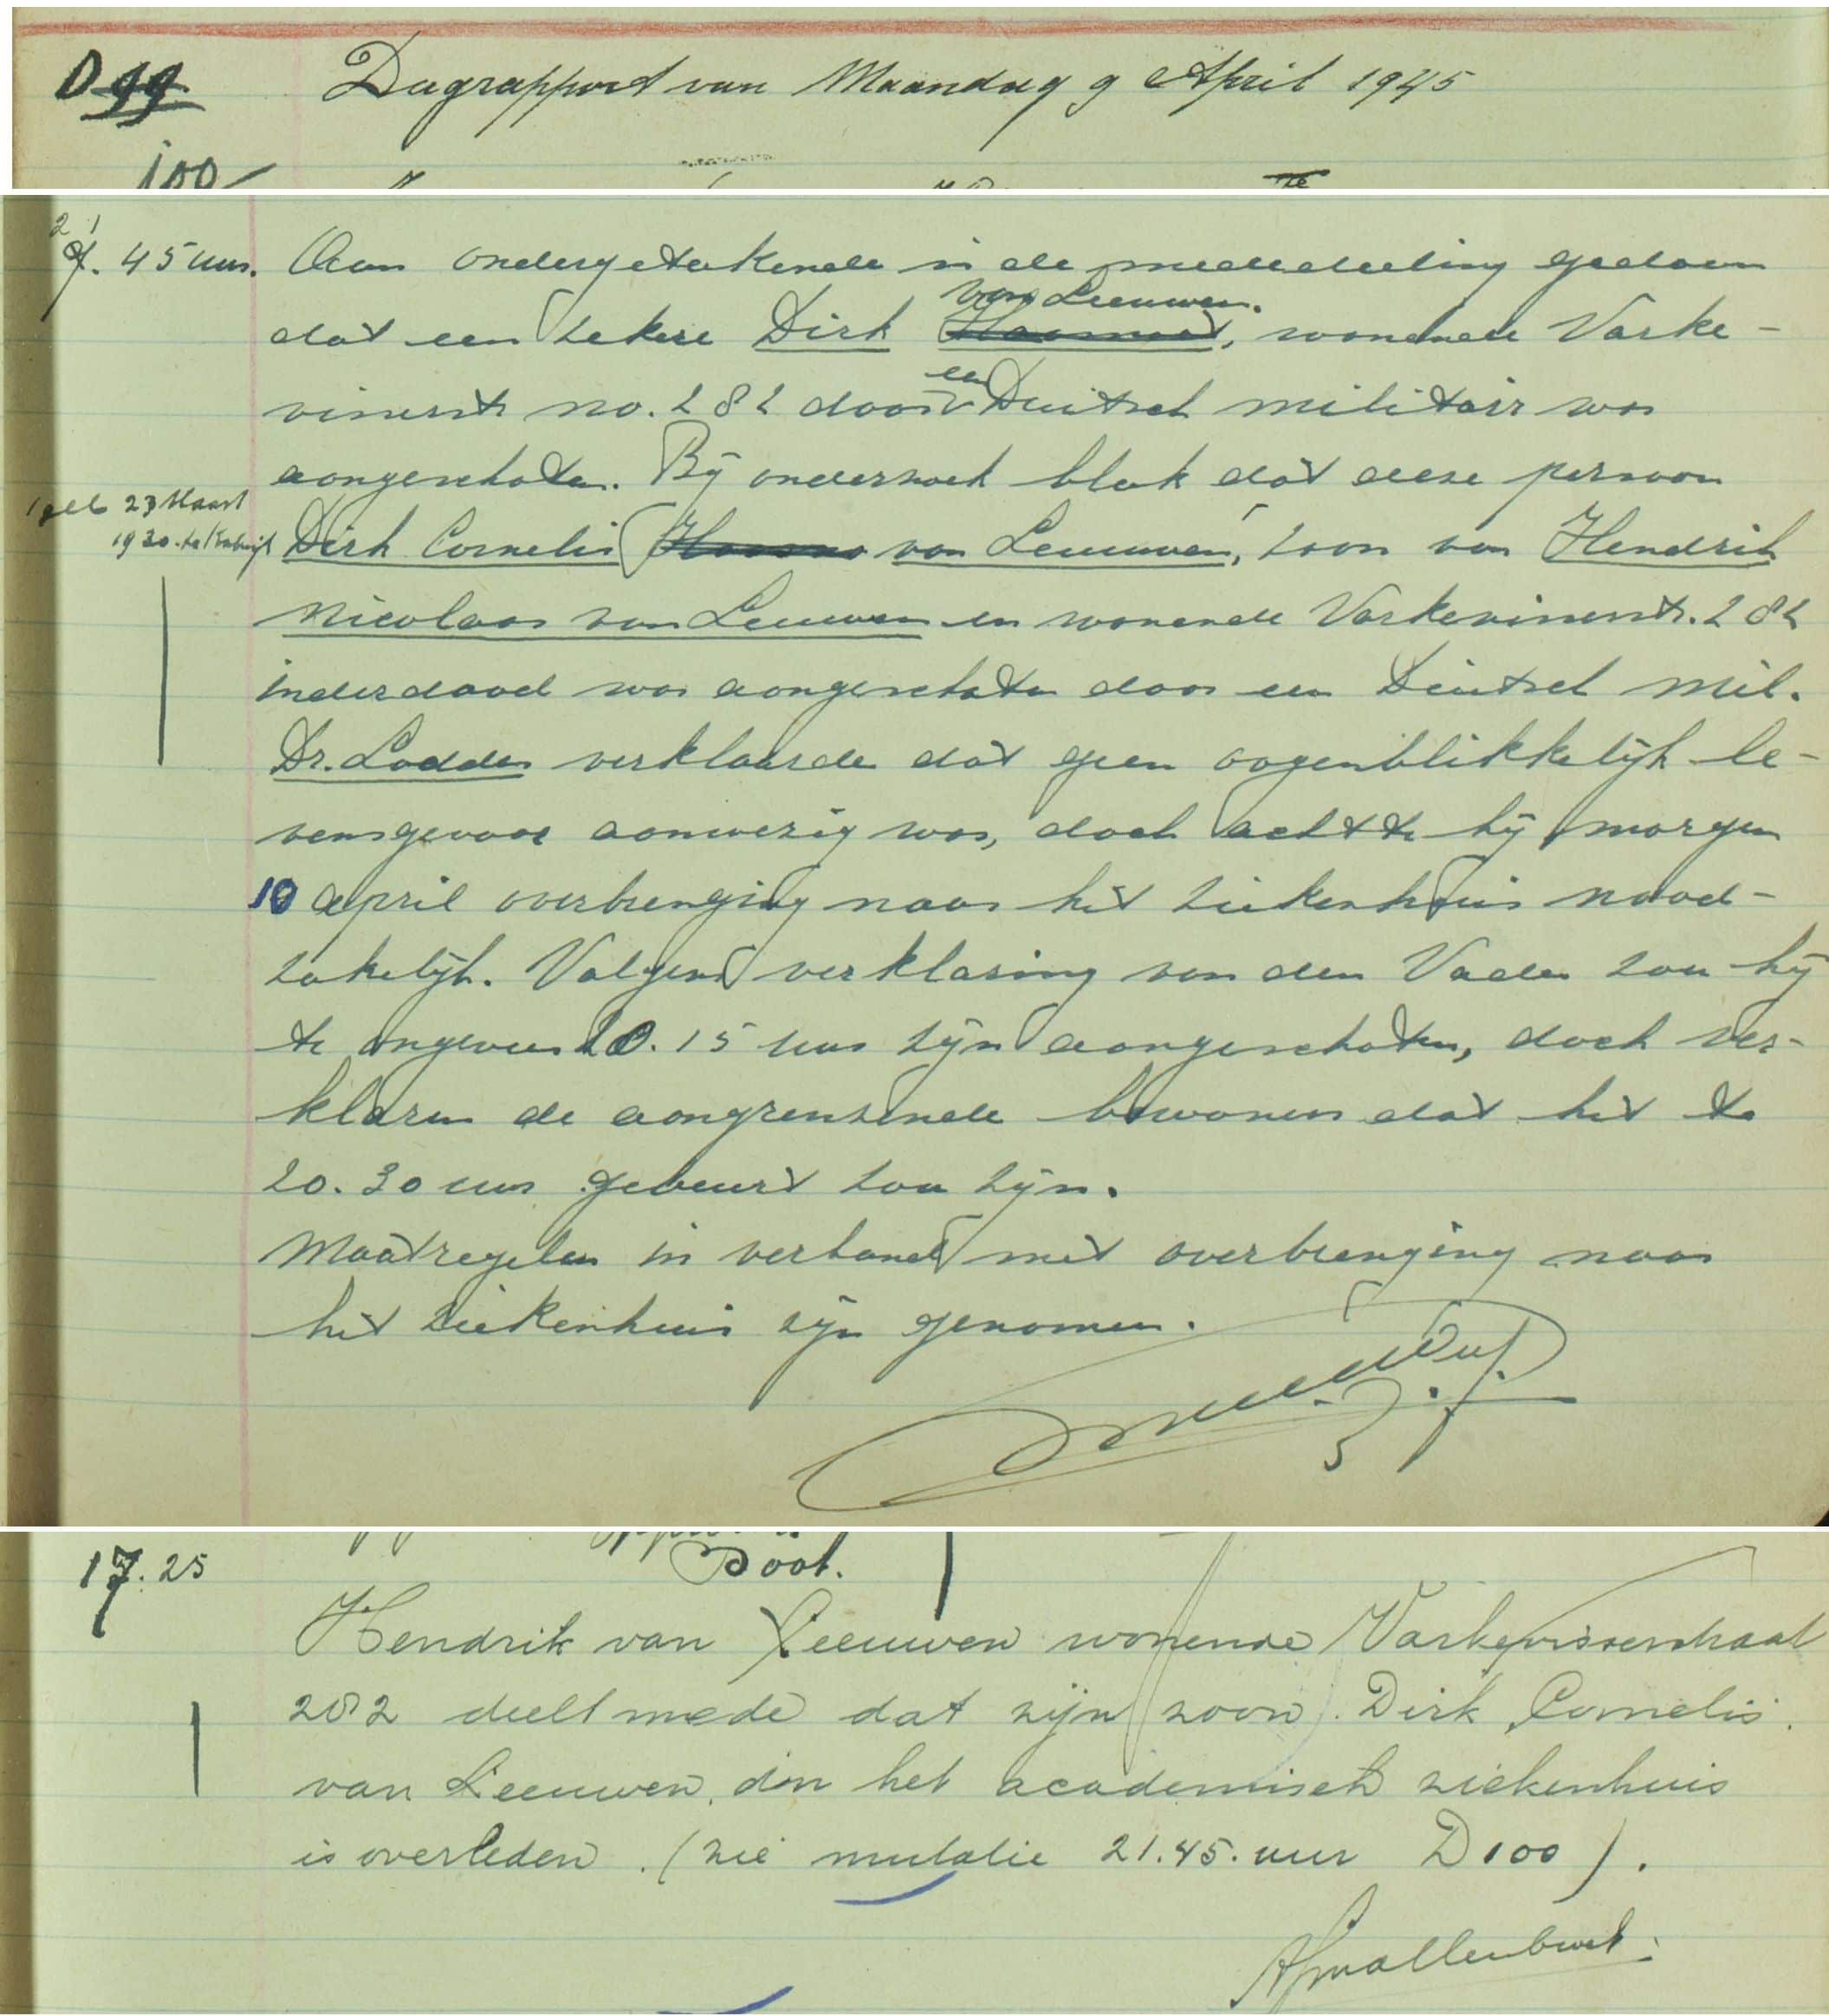 D 99
Dagrapport van Maandag 9 April 1945
100
21
7.45 uur. Aan ondergetekende is de mededeeling gedaan
van Leeuwen.
dat een zekere Dirk Haasnoot, wonende Varke-
een
visserstr no. 282 door Duitsch militair was
aangeschoten. Bij onderzoek bleek dat deze persoon
geb 23 Maart
1930 te Katwijk
Dirk Cornelis Haasnoo van Leeuwen, zoon van Hendrik
Nicolaas van Leeuwen en wonende Varkevisserstr. 282
inderdaad was aangeschoten door een Duitsch mil.
Dr. Lodder verklaarde dat geen oogenblikkelijk le-
vensgevaar aanwezig was, doch achtte hij morgen
10 april overbrenging naar het ziekenhuis nood-
zakelijk. Volgens verklaring van den Vader zou hij
te ongeveer 20.15 uur zijn aangeschoten, doch ver-
klaren de aangrenzende bewoners dat het te
20.30 uur gebeurd zou zijn.
Maatregelen in verband met overbrenging naar
het ziekenhuis zijn genomen.
17.25
Hendrik van Leeuwen wonende Varkevisserstraat
282 deelt mede dat zijn zoon Dirk Cornelis
van Leeuwen, in het academisch ziekenhuis
is overleden. (zie mutatie 21.45. uur D100).